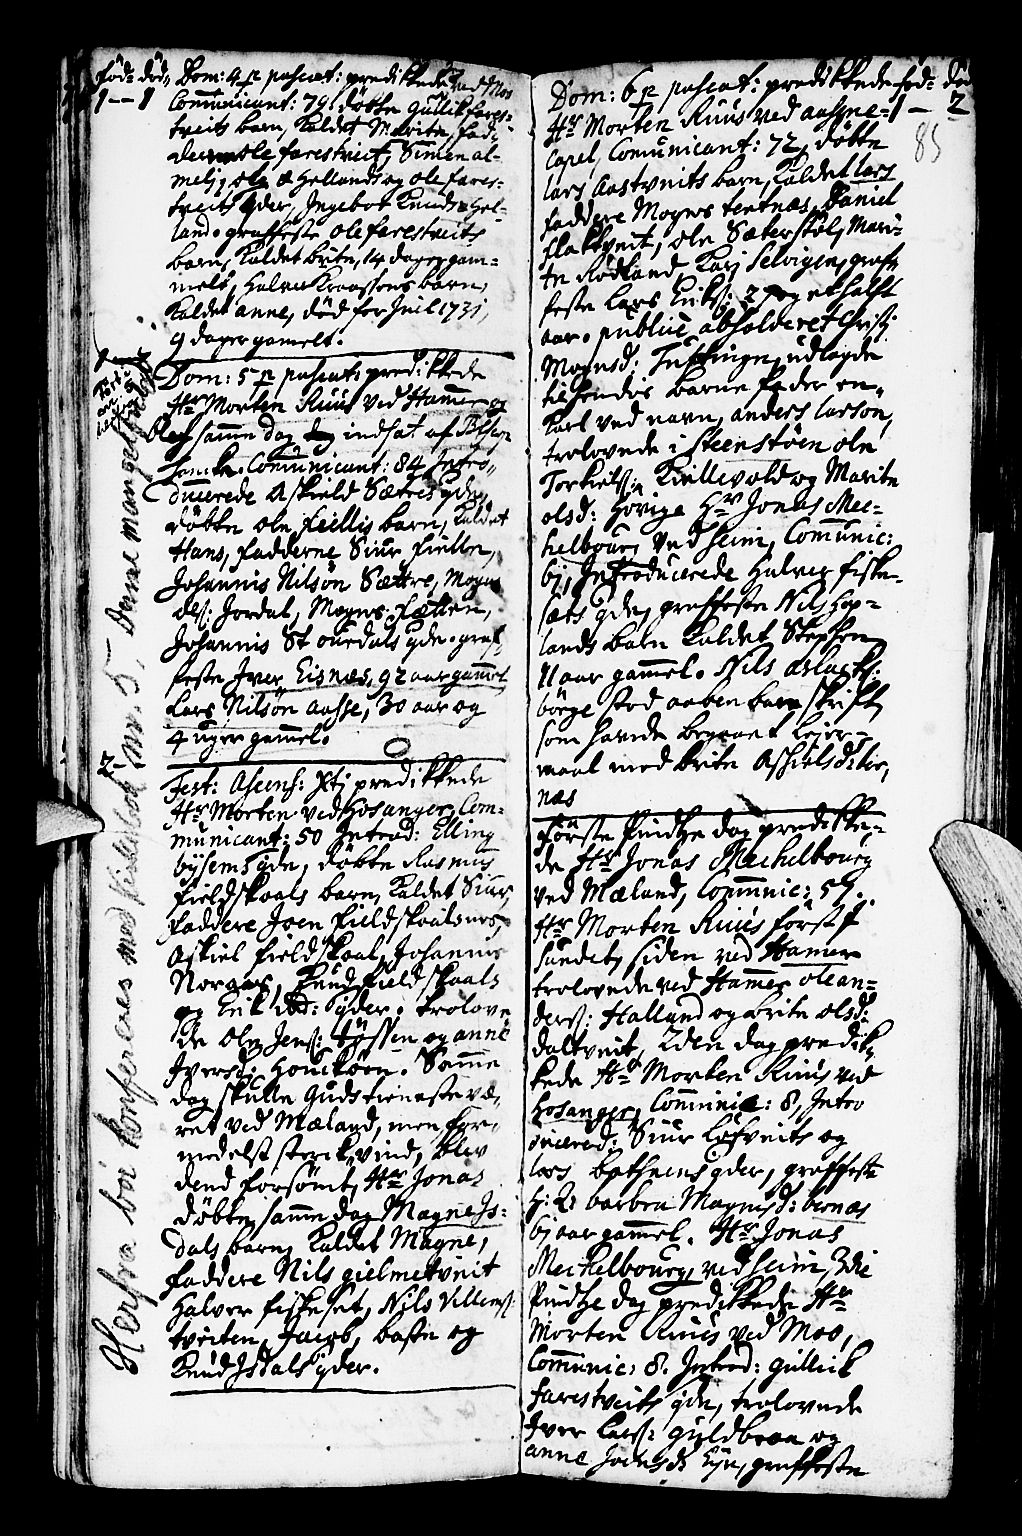 föd= död= Dom: 4 p pascat: predikkede ved Mos
1 -- 1 Communicant: 79, döbte Gullik fares=
tveits barn, kaldet Marite, fad=
derne ole farestveit, Simen al=
melj, ole Hellands og ole fares=
tveits qder, Ingebor Knuds Hel=
land. graffeste ole farestveits
barn, kaldet brite, 14 dager gam=
mels, Halvor Kroassons barn,
kaldet anne, död for Juel 1731,
9 dager gamelt.
Dom: 5 p pascat: predikkede
Hr Morten Ruus ved Hammer og
blev samme dag indsat af
Communicant: 84 Intro=
ducerede Askield Sætres qde,
döbte ole fiellis barn, kaldet
Hans, fadderne Siur fielle,
Johannis Nilsön Sættre, Mogns
ols: Jordal, Mogns fletten,
Johannis Stouedals qde. graf=
feste Iver Eisnæs, 92 aar gammel
Lars Nilsön aasse, 30 aar og
4 uger gammel.
Fest: Ascens: Xtj predikkede
Hr Morten ved Hosanger, Com=
municant: 50 Introd: Elling
bysems qde, döbte Rasmus
fieldskaals barn, kaldet Siur,
faddere Joen fieldskaalsnes,
Askiel fieldskaal, Johannis
Norgar, Knud fieldskaals
og Erik ibd: qder. trolove=
de Ole Jens: tössen og anne
Iversd: Houckoen. Samme
dag skulle Guds tieneste væ=
ret ved Mæland, men for=
medelst sterck vind, blev
dend forsömt, Hr Jonas
döbte samme dag Magne Is=
dals barn, kaldet Magne,
faddere Nils gielmetveit
Halvor fiskeset, Nils Villems:
tveiten, Jacob, baste og
Knud Isdals qder.
Herfra bör konfereres med Kirkebok nr. 5. Denne mangelfuld
Dom: 6 p pascat: predikkede föd= död
Hr Morten Ruus ved aasene= 1 — 2
85
Capel, Comunicant: 72, döbte
lars Aastveits barn, kaldet lars
faddere Mogns tentnæs, Daniel
flaktveit, ole Sæterstöl, Mari=
te Rödland, Karj Selvigen, graf=
feste Lars Eriks: 2 og et halft
aar. publice absolderet Christj
Mognsd: Tuftinge, udlagde
til hendis barne fader en
Karl ved navn, anders larson,
trolovede i steenstöen ole
Torkiels: Kvillevold og Marite
olsd: Hörige Hr Jonas Mec=
helbourg ved seim, Comunic:
61, Introducerede Halvor fiske=
sets qde, graffeste Nils Hop=
lands barn kaldet Stephen
11 aar gammel. Nils aslachs:
börge stod aaben bare skrift,
som havde begaaet Leier=
maal med brite Askielsd: ler,
næs
Förste Pindtze dag predikke=
de Hr Jonas Mechelbourg
ved Mæland, Communic: 57.
Hr Morten Ruus först i
Sundet, siden ved Hamer
trolovede ved Hamer ole an=
ders: Halland og brite olsd:
daltveit, 2den dag predik=
kede Hr Morten Ruus ved
Hosanger, Communic: 8, Intro
ducered: Siur Löfveits og
lars qder, graffeste
H: Q: barbra Magnusd: bernæs
61 aar gammel. Hr Jonas
Mechelbourg ved seim, 3die
Pindtze dag predikkede Hr
Morten Ruus ved Moo,
Communic: 8. Introd: Gullick
farestveits qde, trolovede
Iver Lars: guldbraa og
anne Joensd: Eye, graffeste